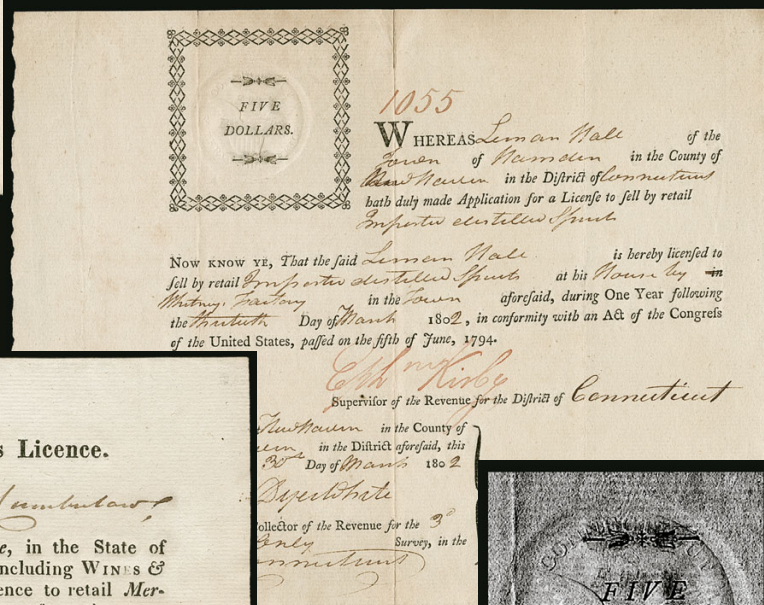 FIVE
DOLLARS.
1055
WHEREAS Leman Hall of the
Town of Hamden in the County of
New Haven in the District of Connecticut
hath duly made Application for a License to ſell by retail
Imported distilled Spirits
NOW KNOW YE, That the ſaid Leman Hall is hereby licensed to
ſell by retail Imported distilled Spirits at his House by in
Whitneys Factory in the Town aforeſaid, during One Year following
the thirtieth Day of March 1802, in conformity with an Act of the Congreſs
of the United States, paſſed on the fifth of June, 1794.
Kirby
Superviſor of the Revenue for the Diſtrict of Connecticut
New haven in the County of
in the Diſtrict aforeſaid, this
30th Day of March 1802
Dyer White
ollector of the Revenue for the 3d
only Survey, in the
onnecticut
s Licence.
e, in the State of
ncluding WINES &
ence to retail Mer-
FIVE